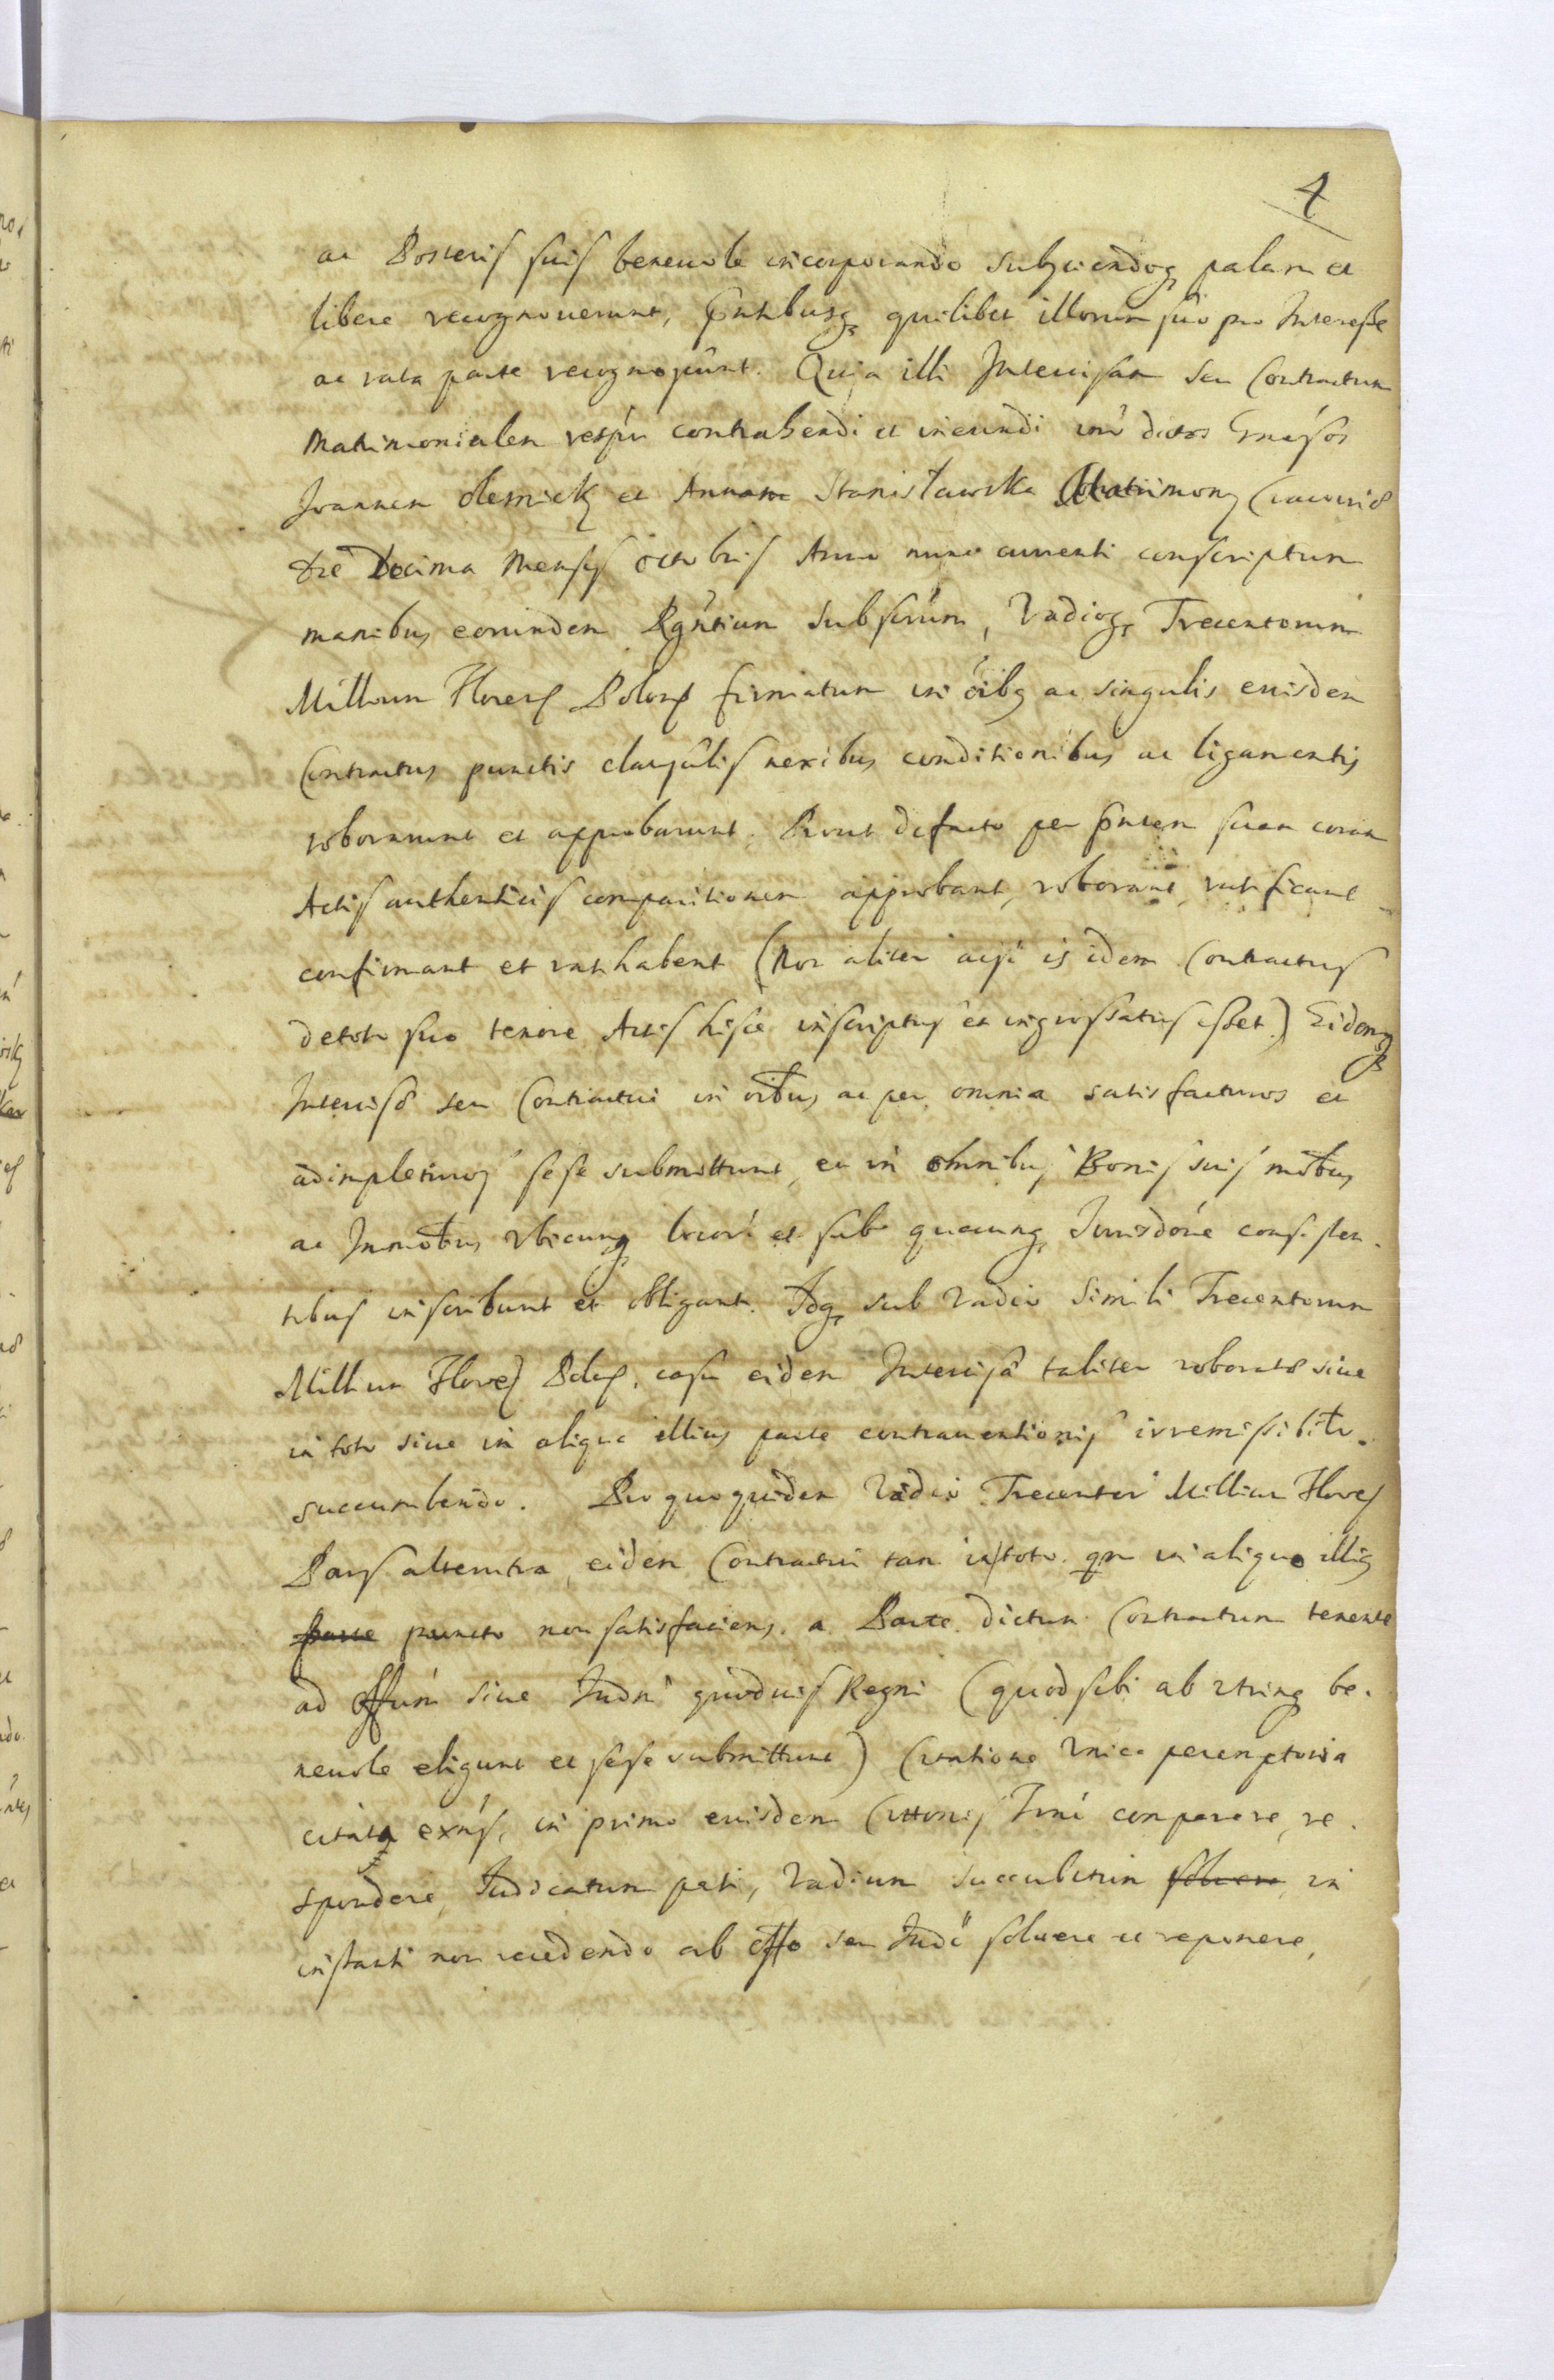 4
ac Posteris suis beneuole incorporando subijciendoq palam et
libere recognouerunt, Pntibusq quilibet illorum suo pro Interesse
ac rata parte recognoscunt. Quia illi Intercisam seu Contractum
Matrimonialem respu contrahendi et ineundi inr dictos Gnesos
Joannem Olesnicki et Annam Stanisławska Matrimonij Cracouiæ
die Decima Mensis Octobris Anno nunc currenti conscriptum
manibus eorundem Rgntium subscrum, Vadioq Trecentorum
Millium Floren Polon firmatum in oibg ac singulis euisdem
Contractus punctis clausulis nexibus conditionibus ac ligamentis
roborarunt et approbarunt. Prout defacto per Pntem suam coram
Actis authenticis comparitionem approbant, roborant, ratificant
confirmant et ratihabent (Non aliter acsi is idem Contractus
detoto suo tenore Actis hisce inscriptus et ingrossatus esset.) Eidemq
Intercisæ seu Contractui in oibus ac per omnia satisfacturos et
adimpleturos sese submittunt, et in omnibus Bonis suis mobus
ac Immobus Vbicunq locor et sub quacunq Jurisdone consisten
tibus inscribunt et obligant. Idq sub Vadio simili Trecentorum
Millium Floren Polon, casu eidem Intercisæ taliter roboratæ siue
in toto siue in aliqua illius parte contrauentionis irremissibilr
succumbendo. Pro quoquidem Vadio Trecentor Millium Floren
Pars alterutra eidem Contractui tam in toto qm in aliquo illius
parte puncto non satisfaciens. a Parte dictum Contractum tenente
ad Offum siue Judm quoduis Regni (quod sibi ab vtrinq be
neuole eligunt et sese submittunt) Citatione Vnica peremptoria
citata exns, in primo euisdem Citonis Trmi comparere, re
spondere, Judicatum pati, Vadium succubitum soluere, in
instanti non recedendo ab Offo seu Judo soluere et reponere,